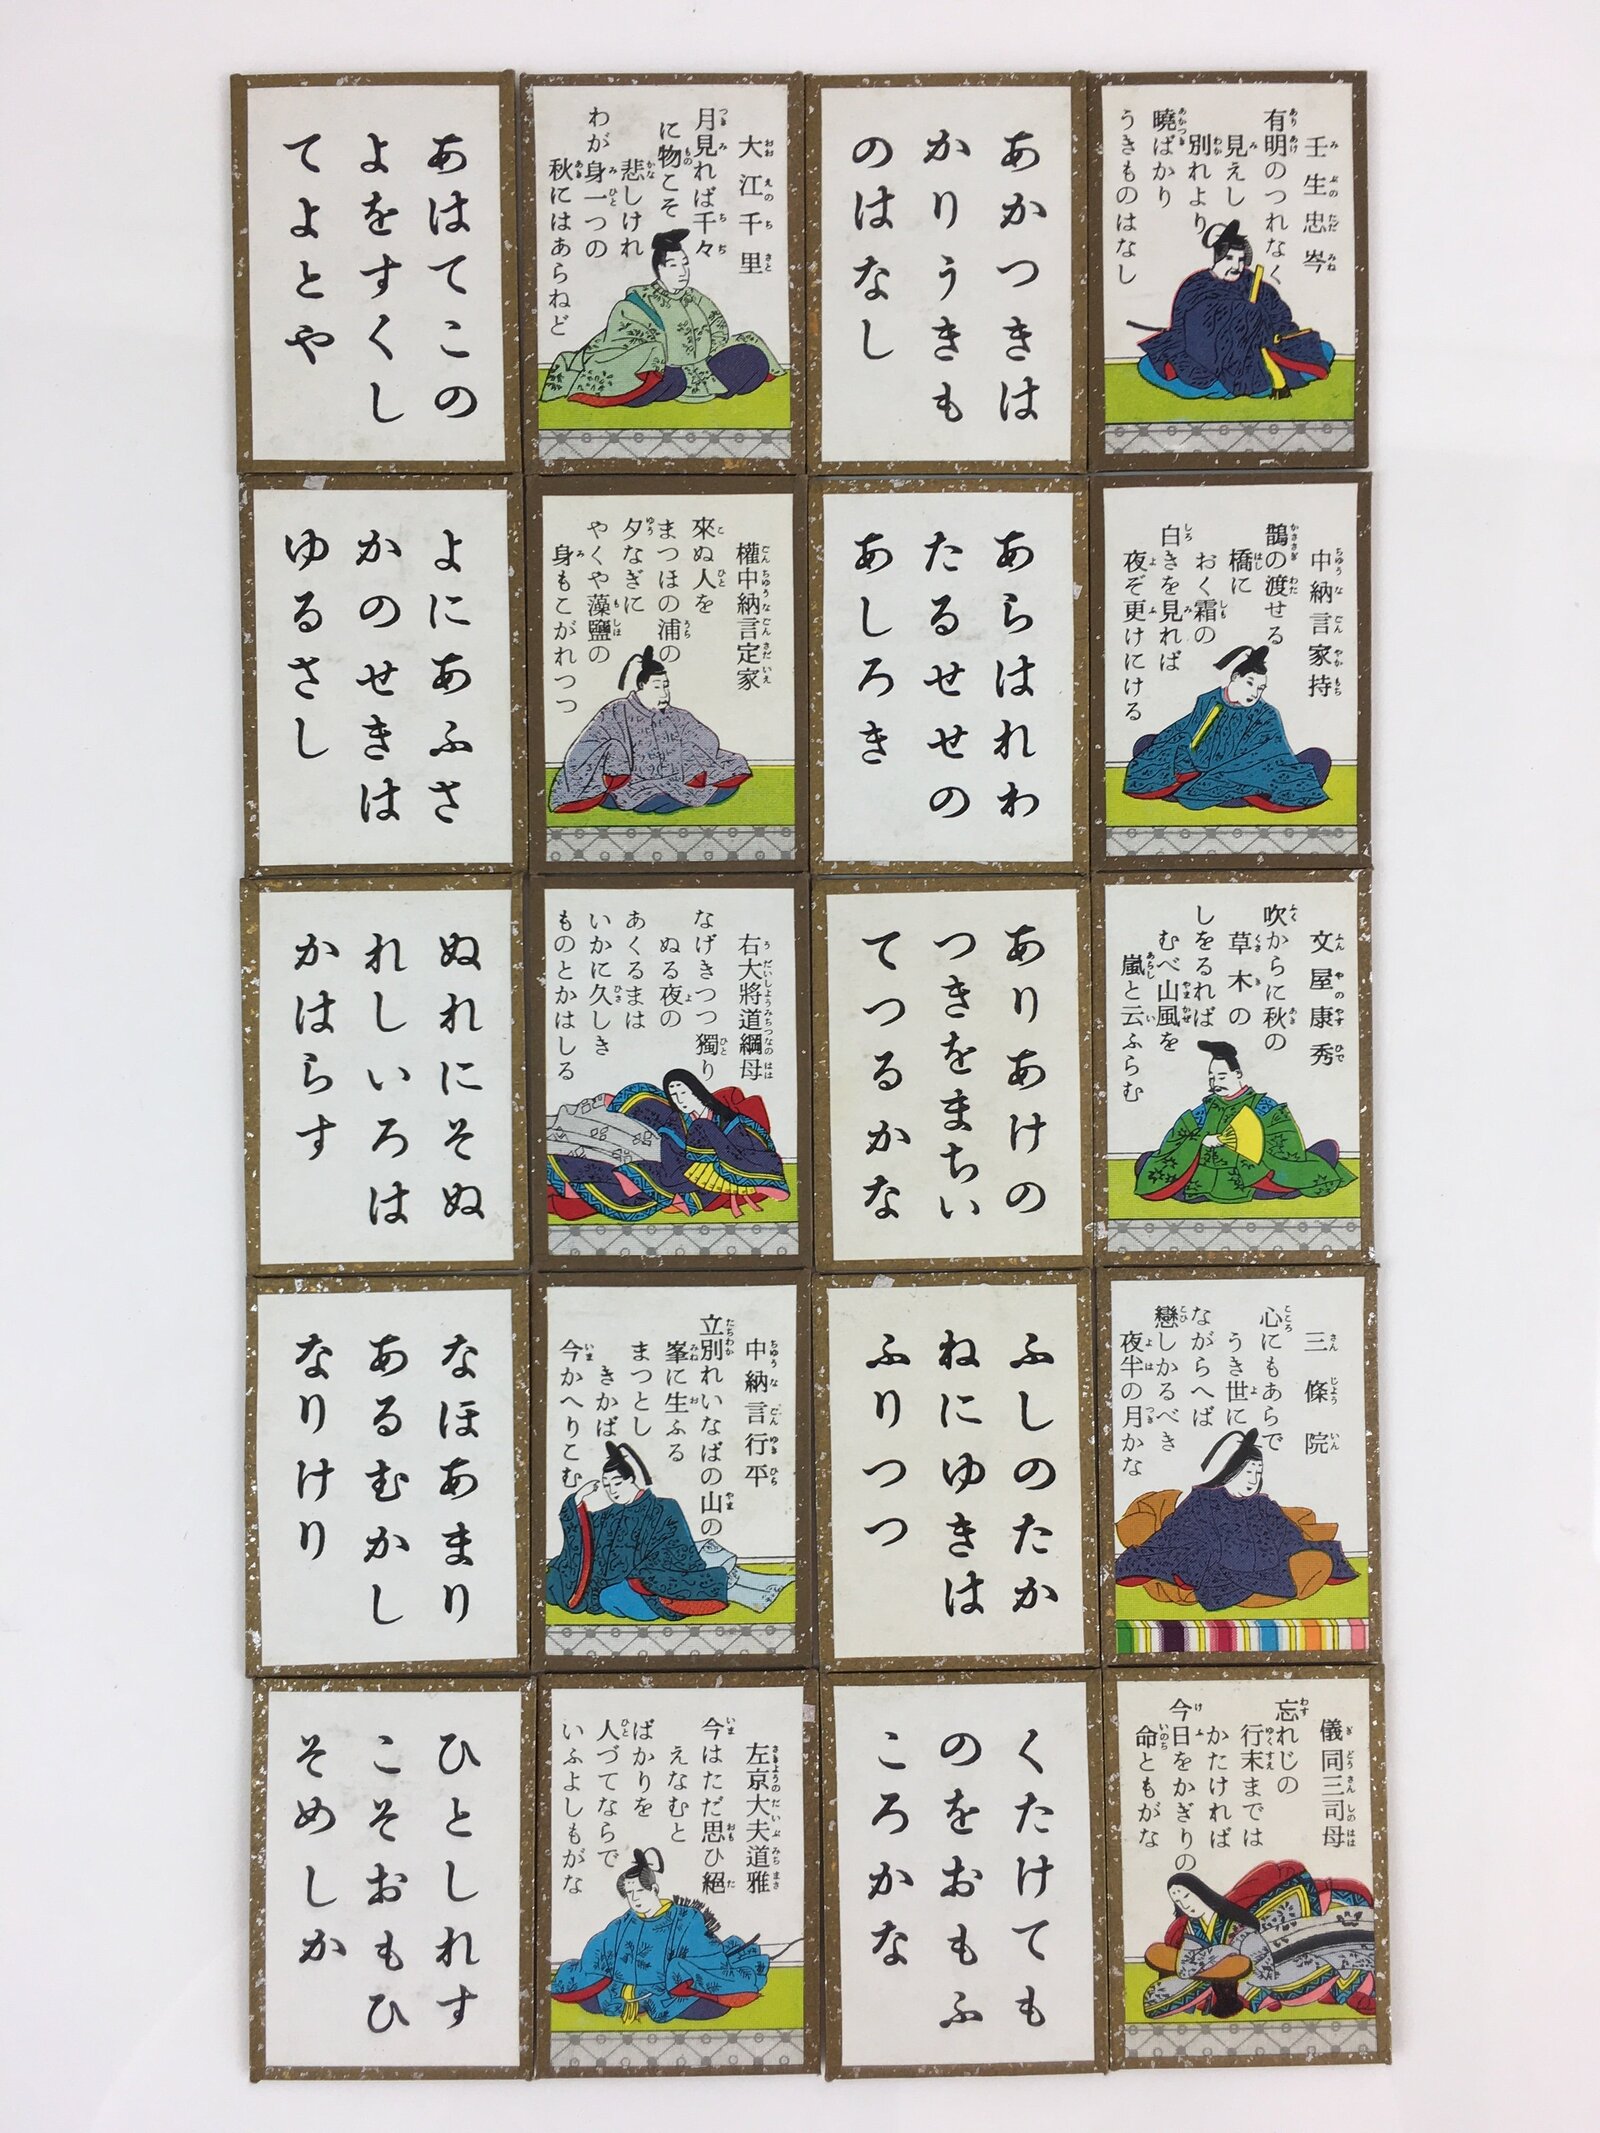 壬生忠岑
有明のつれなく
見えし
別れより
曉ばかり
うきものはなし
あかつきは
かりうきも
のはなし
大江千里
月見れば千々
に物こそ
悲しけれ
わが身一つの
秋にはあらねど
あはてこの
よをすくし
てよとや
中納言家持
鵲の渡せる
橋に
おく霜の
白きを見れば
夜ぞ更けにける
あらはれわ
たるせせの
あしろき
權中納言定家
來ぬ人を
まつほの浦の
夕なぎに
やくや藻鹽の
身もこがれつつ
よにあふさ
かのせきは
ゆるさし
文屋康秀
吹からに秋の
草木の
しをるれば
むべ山風を
嵐と云ふらむ
ありあけの
つきをまちい
てつるかな
右大將道綱母
なげきつつ獨り
ぬる夜の
あくるまは
いかに久しき
ものとかはしる
ぬれにそぬ
れしいろは
かはらす
三條院
心にもあらで
うき世に
ながらへば
戀しかるべき
夜半の月かな
ふしのたか
ねにゆきは
ふりつつ
中納言行平
立別れいなばの山の
峯に生ふる
まつとし
きかば
今かへりこむ
なほあまり
あるむかし
なりけり
儀同三司母
忘れじの
行末までは
かたければ
今日をかぎりの
命ともがな
くたけても
のをおもふ
ころかな
左京大夫道雅
今はただ思ひ絕
えなむと
ばかりを
人づてならで
いふよしもがな
ひとしれす
こそおもひ
そめしか